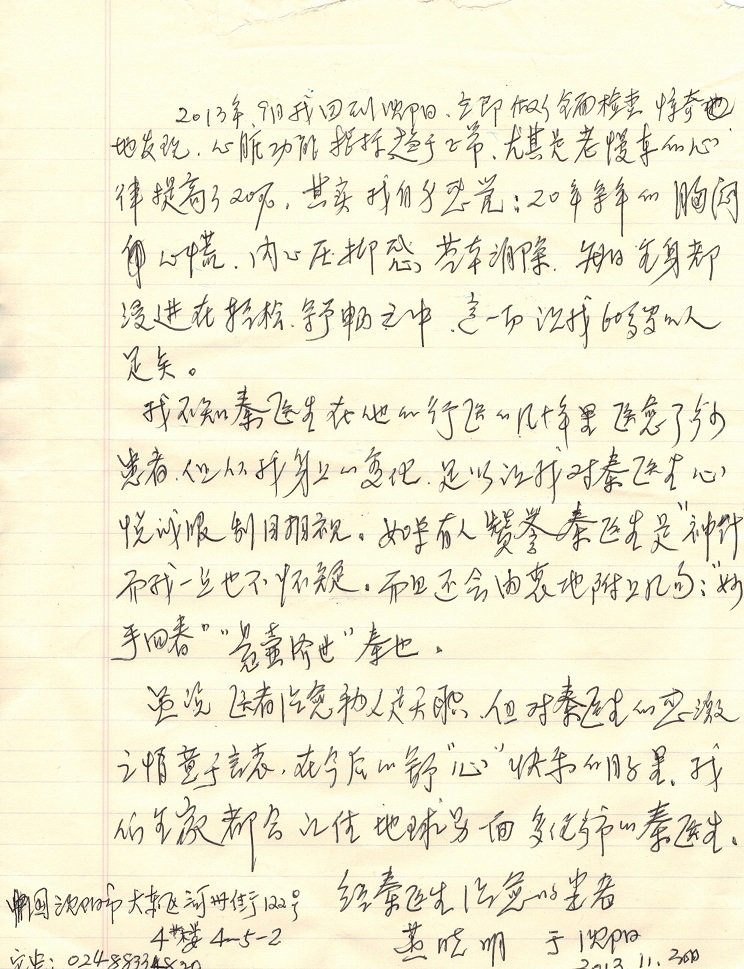 2013年9月我回到沈阳、立即做了全面检查 惊奇地
地发现、心脏功能指标趋于正常、尤其是老慢车的心
律提高了20%，其实我自身感觉：20年来的胸闷
心慌、内心压抑感基本消除，每日全身都
浸进在轻松、舒畅之中，这一切让我60多岁的人
足矣。
我不知秦医生在他的行医的几十年里医愈了多少
患者，但从我身上的变化，足以让我对秦医生心
悦诚服刮目相视。如果有人赞誉秦医生是"神针
而我一点也不怀疑。而且还会由衷地附上几句："妙
手回春""悬壶济世"秦也。
虽说医者治愈病人是天职、但对秦医生的感激
之情莫于言表，在今后的舒"心"快乐的日子里，我
们全家都会记住地球另面多伦多市的秦医生。
给秦医生治愈的患者
中国沈阳市大东区河州街122号
4#楼 4-5-2
燕晓明 于沈阳
电：024-8833
2013.11.30日